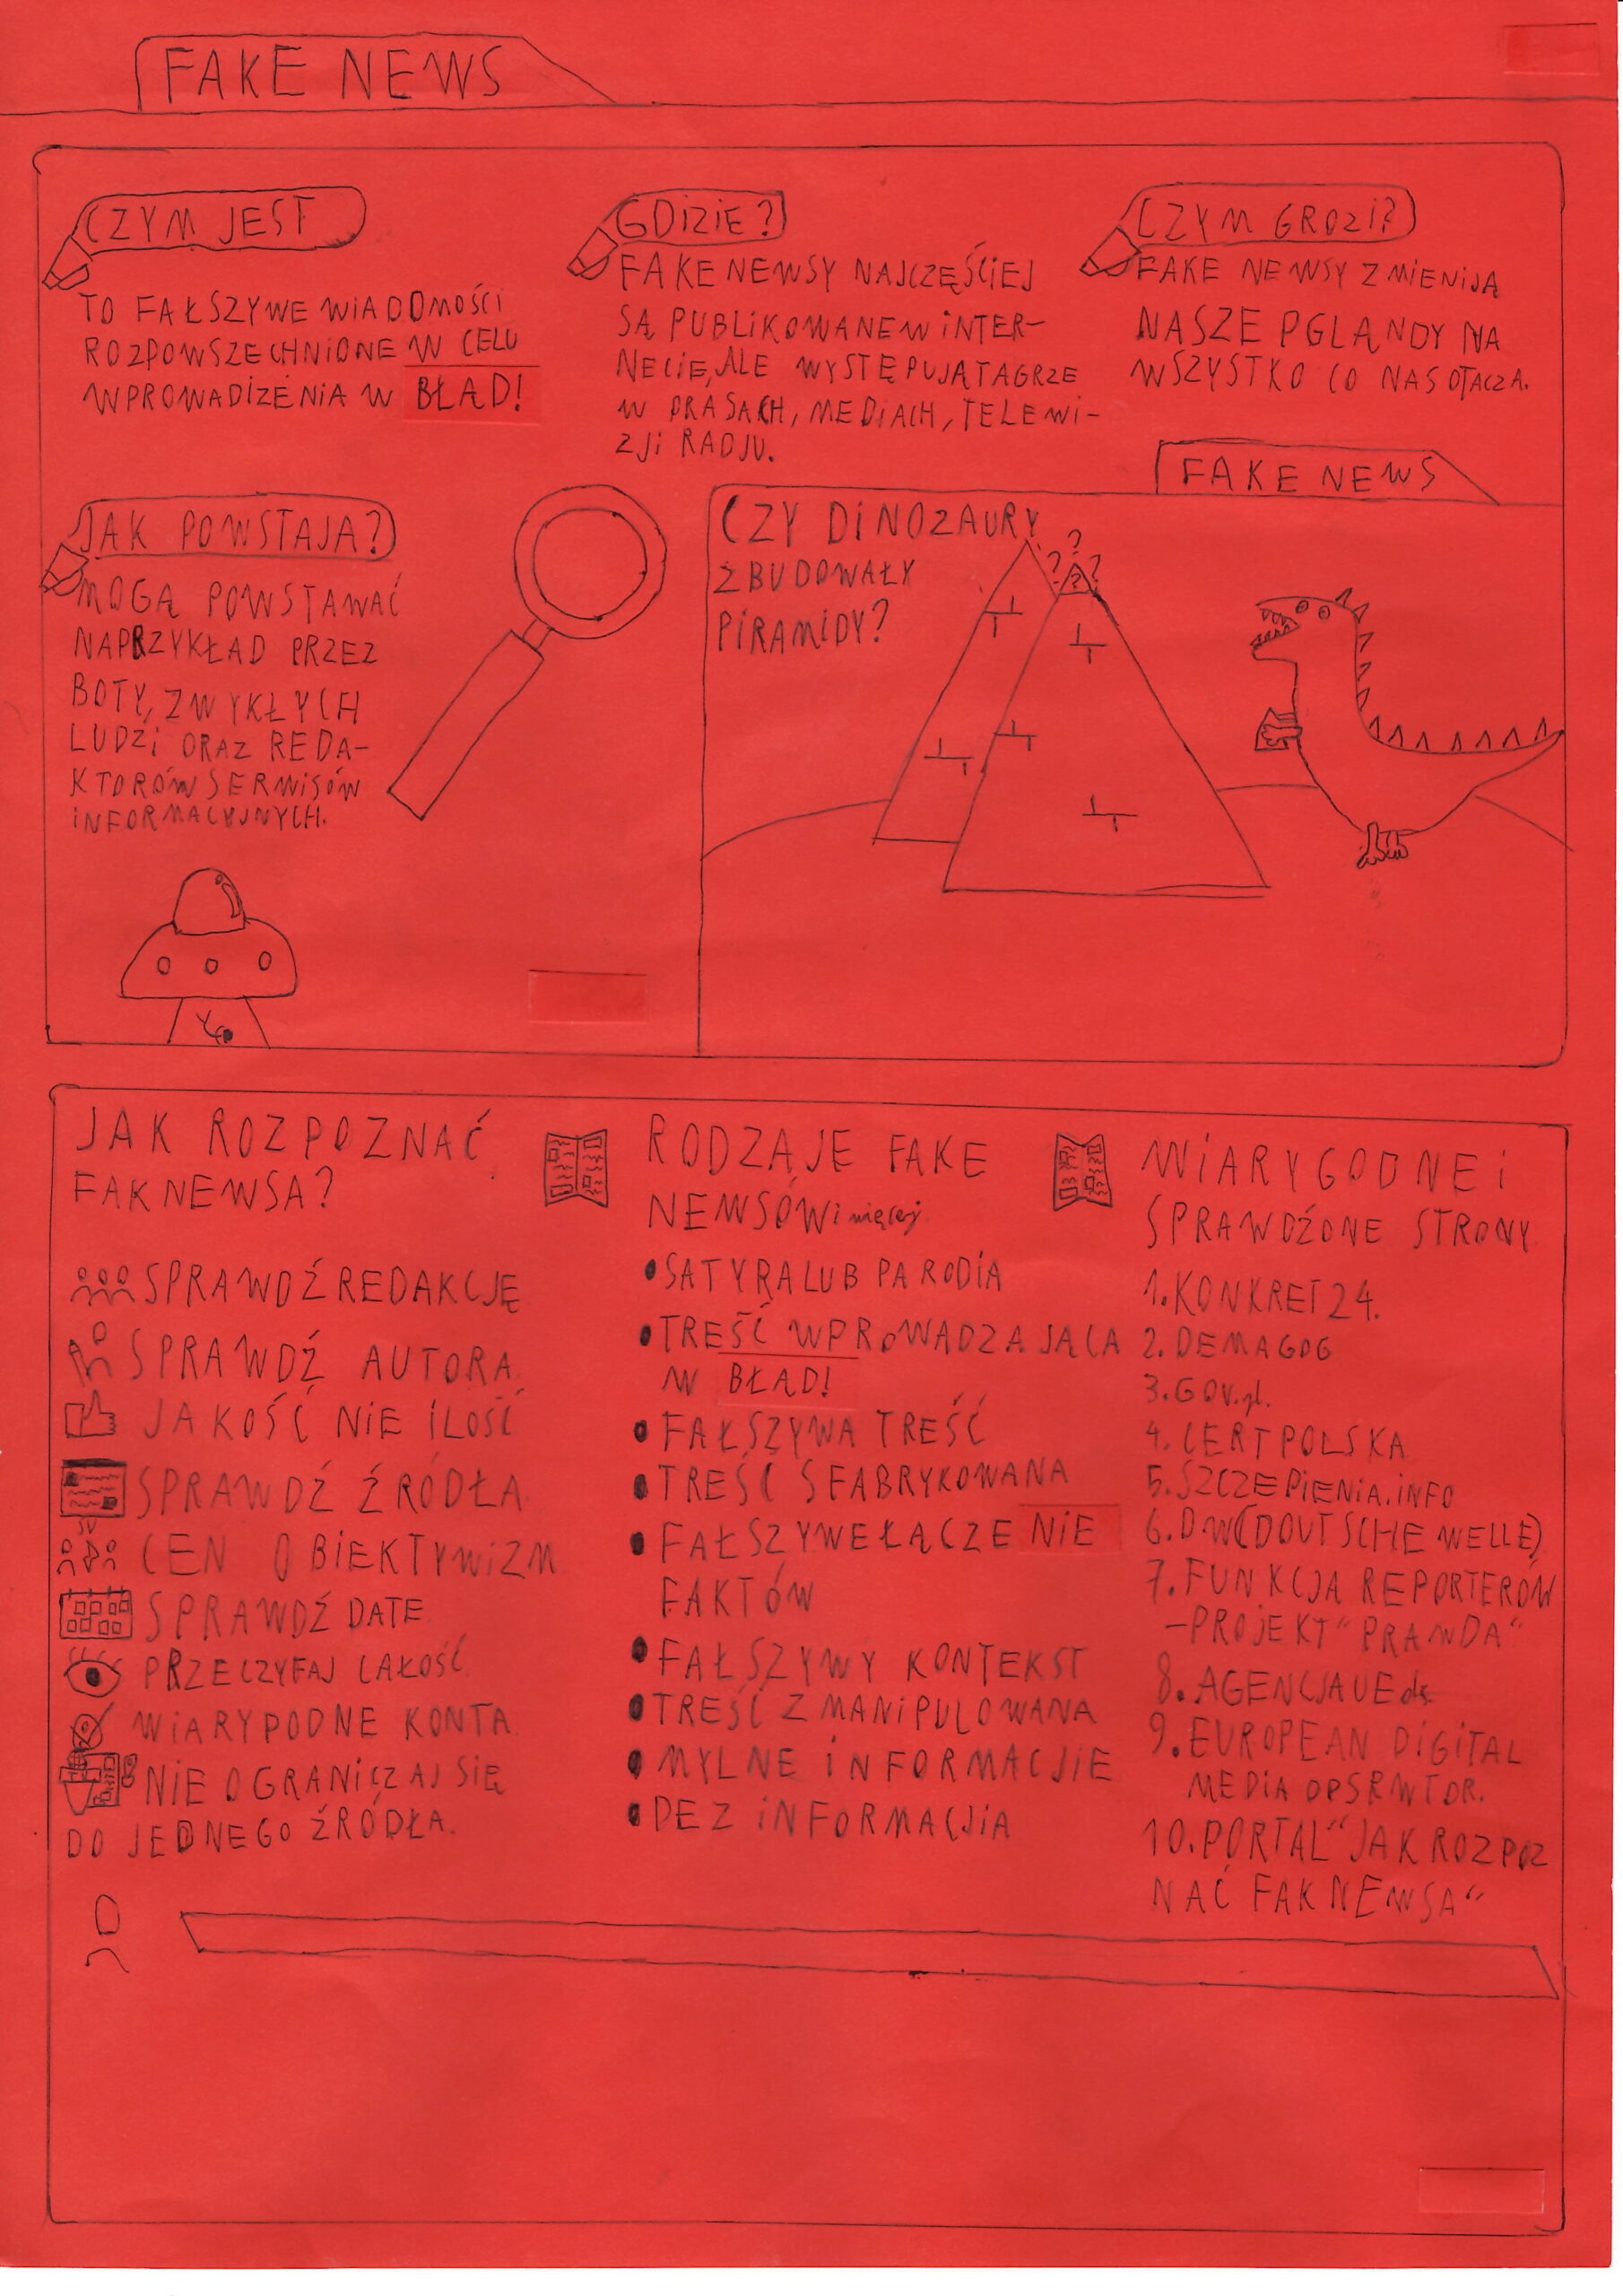 FAKE NEWS
CZYM JEST
TO FAŁSZYWE WIADOMOŚCI
ROZPOWSZECHNIONE W CELU
WPROWADIZENIA W BŁĄD!
GDIZIE?
FAKE NEWSY NAJCZĘŚCIEJ
SĄ PUBLIKOWANE W INTER-
NECIE, ALE WYSTĘPUJĄ TAGRZE
W PRASACH, MEDIACH, TELEWI-
ZJI RADJU.
CZYM GROZI?
FAKE NEWSY ZMIENIJĄ
NASZE PGLĄNDY NA
WSZYSTKO CO NAS OTACZA.
JAK POWSTAJA?
MOGĄ POWSTAWAĆ
NAPRZYKŁAD PRZEZ
BOTY, ZWYKŁYCH
LUDZI ORAZ REDA-
KTORÓW SERWISÓW
INFORMACYJNYCH.
FAKE NEWS
CZY DINOZAURY
ZBUDOWAŁY
PIRAMIDY?
? ? ? ?
JAK ROZPOZNAĆ
FAKNEWSA?
SPRAWDŹ REDAKCJĘ
SPRAWDŹ AUTORA
JAKOŚĆ NIE ILOŚĆ
SPRAWDŹ ŹRÓDŁA
CEN OBIEKTYWIZM
SPRAWDŹ DATE
PRZECZYTAJ CAŁOŚĆ
WIARYPODNE KONTA
NIE OGRANICZAJ SIĘ
DO JEDNEGO ŹRÓDŁA.
RODZAJE FAKE
NEWSÓW i więcej
• SATYRA LUB PARODIA
• TREŚĆ WPROWADZAJĄCA
W BŁĄD!
• FAŁSZYWA TREŚĆ
• TREŚĆ SFABRYKOWANA
• FAŁSZYWE ŁĄCZENIE
FAKTÓW
• FAŁSZYWY KONTEKST
• TREŚĆ ZMANIPULOWANA
• MYLNE INFORMACJIE
• DEZINFORMACJIA
WIARYGODNE I
SPRAWDŹONE STRONY
1. KONKRET24.
2. DEMAGOG
3. GOV.pl.
4. CERT POLSKA
5. SZCZEPIENIA.INFO
6. DW(DOUTSCHE WELLE)
7. FUNKCJA REPORTERÓW
-PROJEKT "PRAWDA"
8. AGENCJA UE ds.
9. EUROPEAN DIGITAL
MEDIA OPSRWTOR.
10. PORTAL "JAK ROZPOZ
NAĆ FAKNEWSA"